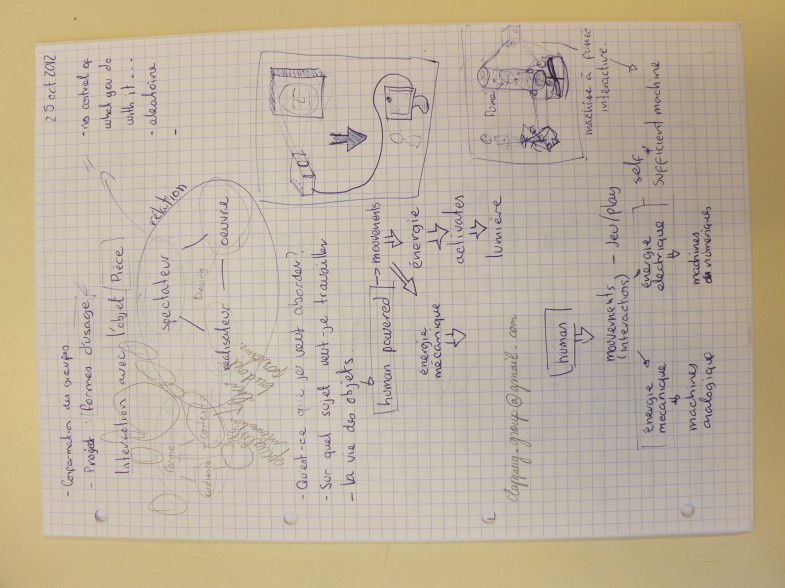 25 oct 2012
- no control of
what you do
with it...
- aléatoire
-
- Conformation des groupes
- Projet : formes d'usage
Interaction avec l'objet / Pièce
relation
spectateur
Desing
réalisateur — oeuvre
forme
- Qu'est-ce que je veut aborder?
- Sur quel sujet veut-je travailler
- La vie des objets
human powered → mouvements
énergie
activates
lumière
énergie
mécanique
machine à fumée
interactive
self
sufficient machine
clapping.group@gmail.com
human
mouvements - Jeu/play
(interactions)
énergie
mécanique
énergie
électrique
machines
analogique
machines
numériques